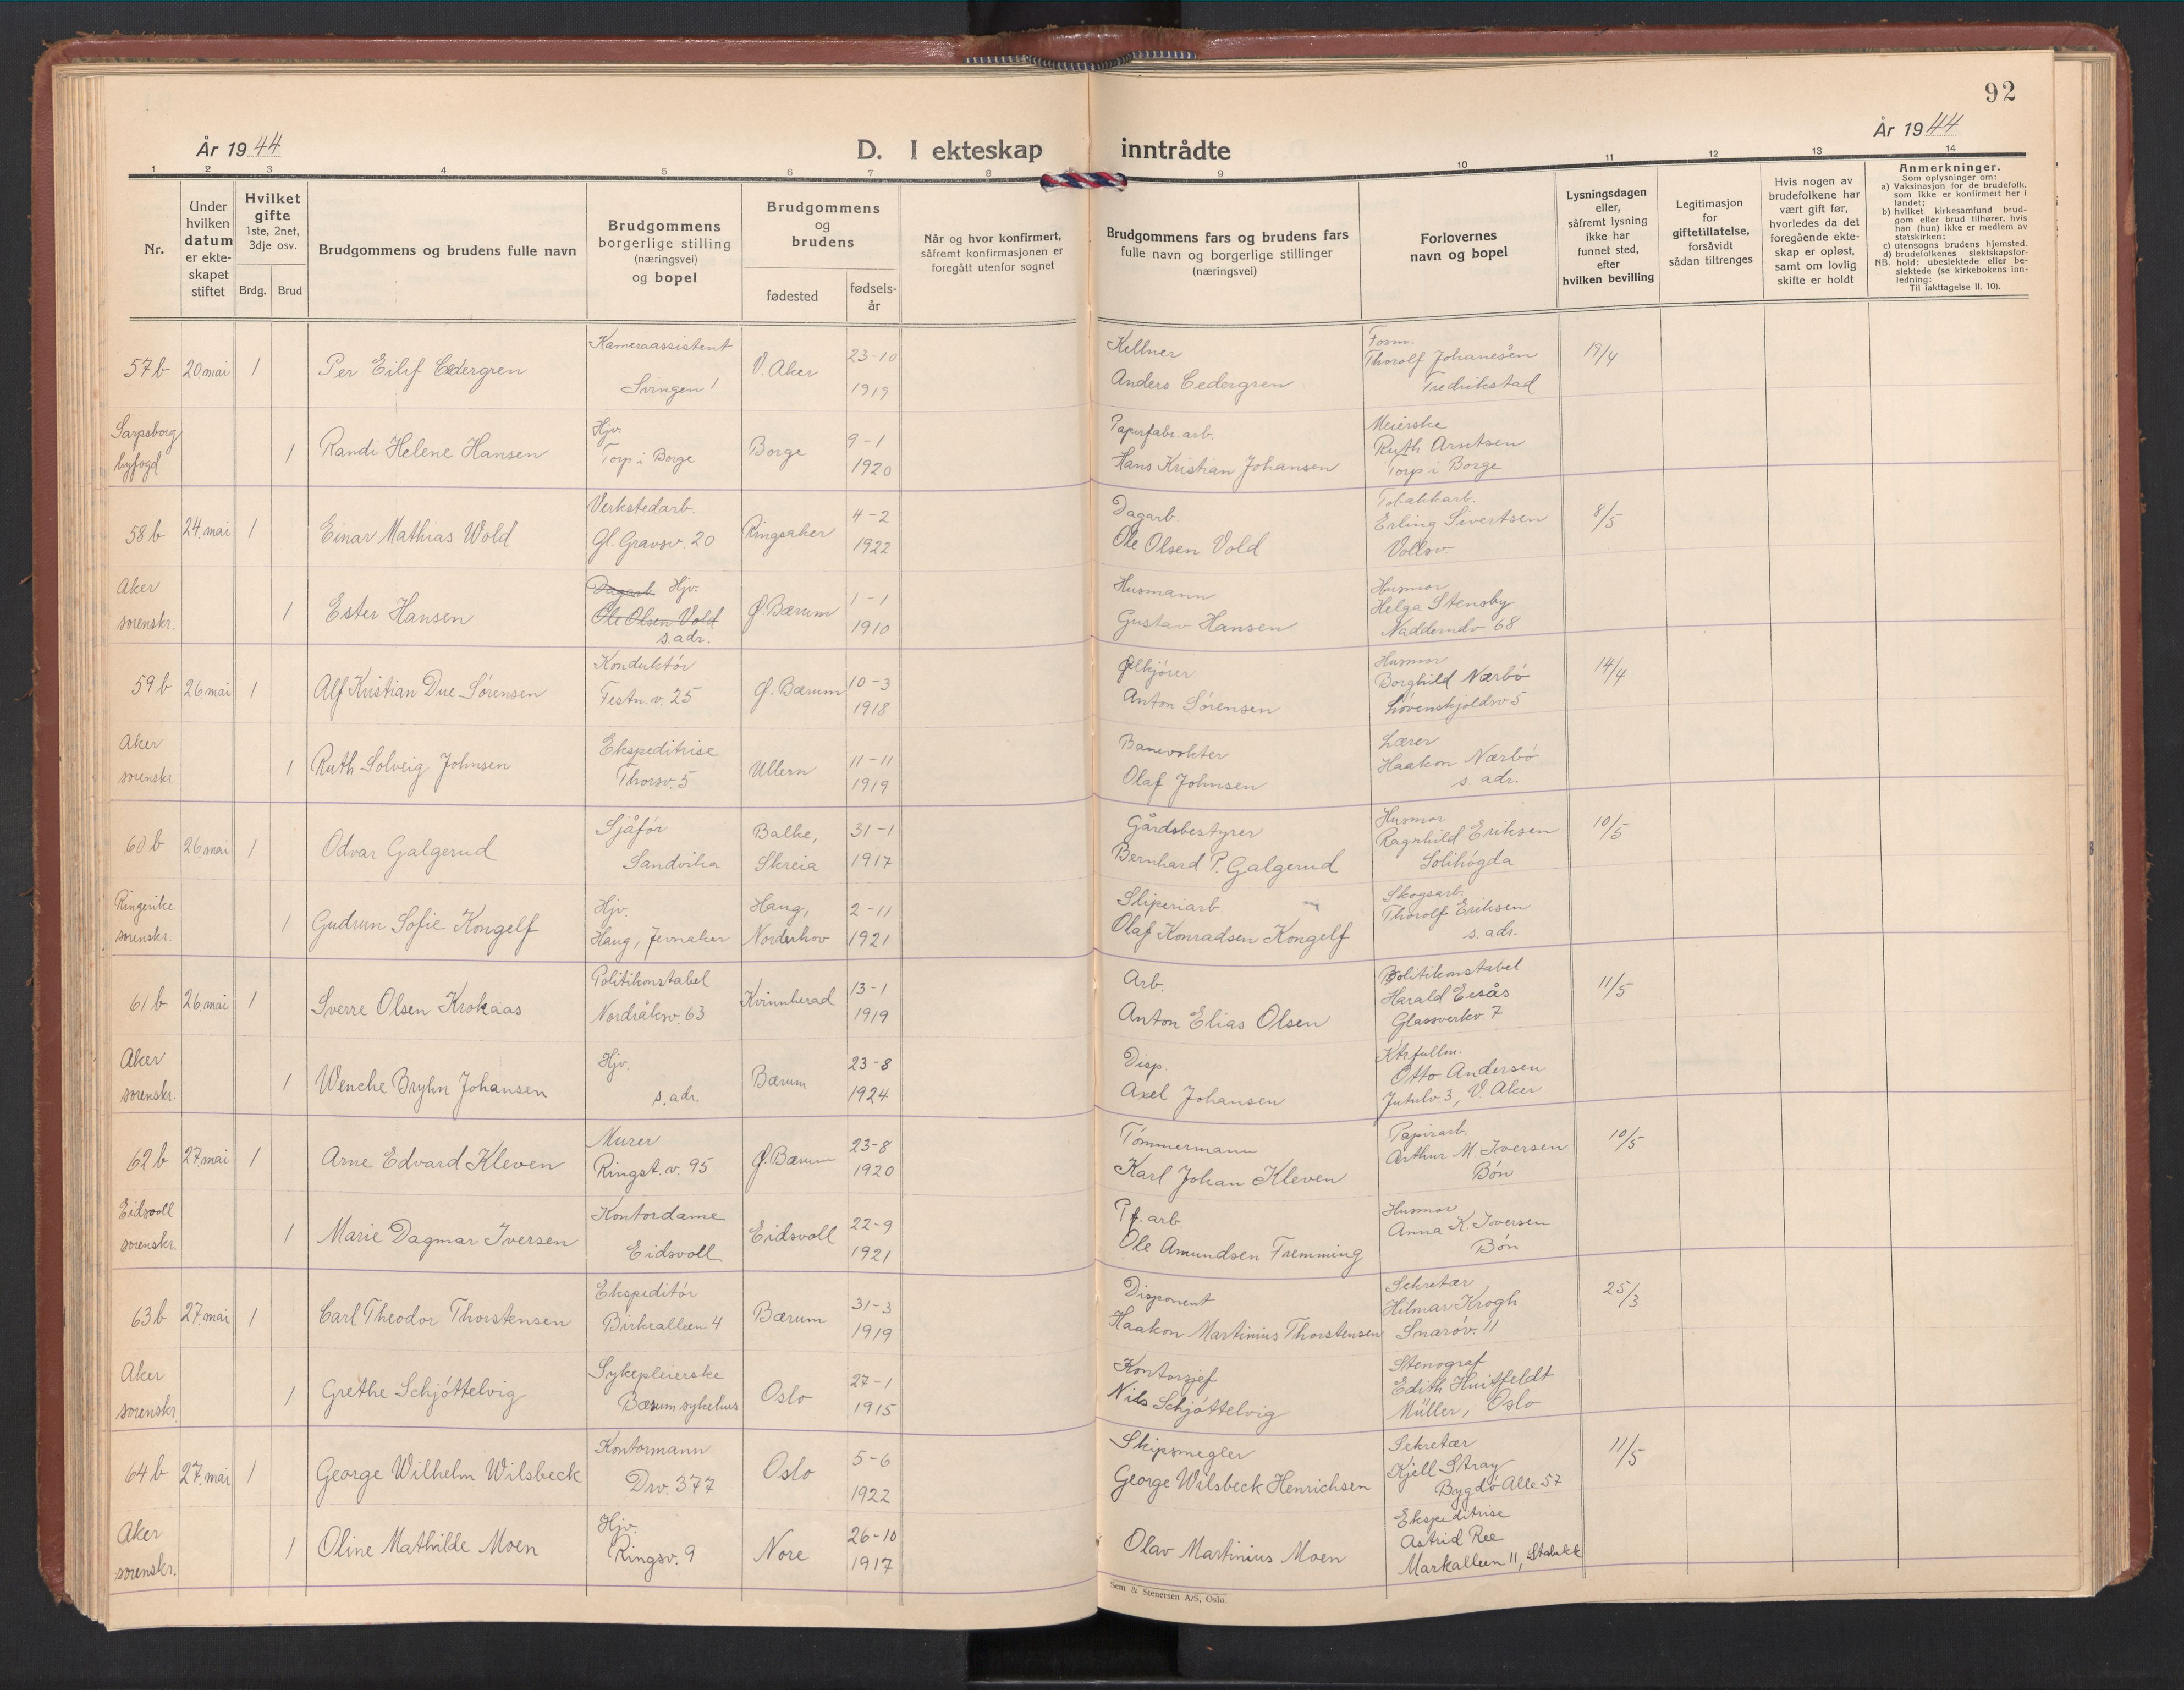 92
År 1944
D. I ekteskap inntrådte
År 1944
1 2 3 4 5 6 7 8 9 10 11 12 13 14
Nr.
Under hvilken datum er ekteskapet stiftet
Hvilket gifte 1ste, 2net, 3dje osv.
Brdg. Brud
Brudgommens og brudens fulle navn
Brudgommens borgerlige stilling (næringsvei) og bopel
Brudgommens og brudens
fødested
fødselsår
Når og hvor konfirmert, såfremt konfirmasjonen er foregått utenfor sognet
Brudgommens fars og brudens fars fulle navn og borgerlige stillinger (næringsvei)
Forlovernes navn og bopel
Lysningsdagen eller, såfremt lysning ikke har funnet sted, efter hvilken bevilling
Legitimasjon for giftetillatelse, forsåvidt sådan tiltrenges
Hvis nogen av brudefolkene har vært gift før, hvorledes da det foregående ekteskap er opløst, samt om lovlig skifte er holdt
Anmerkninger.
Som oplysninger om:
a) Vaksinasjon for de brudefolk, som ikke er konfirmert her i landet;
b) hvilket kirkesamfund brudgom eller brud tilhører, hvis han (hun) ikke er medlem av statskirken;
c) utensogns brudens hjemsted.
d) brudefolkenes slektskapsforhold: ubeslektede eller beslektede (se kirkebokens innledning:
NB.
Til iakttagelse II. 10).
57 b 20. mai 1 Per Eilif Cedergren Kameraassistent Svingen 1 V. Aker 23-10 1919 Kellner Anders Cedergren Form. Thorolf Johanesen Fredrikstad 19/4
Sarpsborg byfogd 1 Randi Helene Hansen Hjv. Torp i Borge Borge 9-1 1920 Papirfabr. arb. Hans Kristian Johansen Meierske Ruth Arntsen Torp i Borge
58 b 24. mai 1 Einar Mathias Wold Verkstedarb. Gl. Gravsv. 20 Ringsaker 4-2 1922 Dagarb. Ole Olsen Vold Tobakkarb. Erling Sivertsen Vollsv. 8/5
Aker sorenskr. 1 Ester Hansen Dagarb. Hjv. Ole Olsen Vold s. adr. Ø. Bærum 1-1 1910 Husmann Gustav Hansen Husmor Helga Stensby Nadderudv 68
59 b 26 mai 1 Alf Kristian Due-Sørensen Konduktør Festn. v. 25 Ø. Bærum 10-3 1918 Ølkjører Anton Sørensen Husmor Borghild Nærbö Løvenskjoldsv 5 14/4
Aker sorenskr. 1 Ruth Solveig Johnsen Ekspeditrise Thorsv. 5 Ullern 11-11 1919 Banevokter Olaf Johnsen Lærer Haakon Nærbö s. adr.
60 b 26 mai 1 Odvar Galgerud Sjåfør Sandvika Balke, Skreia 31-1 1917 Gårdsbestyrer Bernhard P. Galgerud Husmor Ragnhild Eriksen Solihøgda 10/5
Ringerike sorenskr. 1 Gudrun Sofie Kongelf Hjv. Haug, Jevnaker Haug, Norderhov 2-11 1921 Sliperiarb. Olaf Konradsen Kongelf Skogsarb. Thorolf Eriksen s. adr.
61 b 26. mai 1 Sverre Olsen Krokaas Politikonstabel Nordråksv. 63 Kvinnherad 13-1 1919 Arb. Anton Elias Olsen Politikonstabel Harald Eesås Glassverkv 7 11/5
Aker sorenskr. 1 Wenche Bryhn Johansen Hjv. s. adr. Bærum 23-8 1924 Disp. Axel Johansen Ktrfullm. Otto Andersen Jutulv. 3, V. Aker
62 b 27. mai 1 Arne Edvard Kleven Murer Ringst. v. 95 Ø. Bærum 23-8 1920 Tømmermann Karl Johan Kleven Papirarb. Arthur M. Iversen Bøn 10/5
Eidsvoll sorenskr. 1 Marie Dagmar Iversen Kontordame Eidsvoll Eidsvoll 22-9 1921 Pf. arb. Ole Amundsen Fremming Husmor Anna K. Iversen Bøn
63 b 27. mai 1 Carl Theodor Thorstensen Ekspeditør Birkealleen 4 Bærum 31-3 1919 Disponent Haakon Martinius Thorstensen Sekretær Hilmar Krogh Snarøv. 11 25/3
Aker sorenskr. 1 Grethe Schjøttelvig Sykepleierske Bærum sykehus Oslo 27-1 1915 Kontorsjef Nils Schjøttelvig Stenograf Edith Huitfeldt Müller, Oslo
64 b 27. mai 1 George Wilhelm Wilsbeck Kontormann Drv. 377 Oslo 5-6 1922 Skipsmegler George Wilsbeck Henrichsen Sekretær Kjell Stray Bygdø Alle 57 11/5
Aker sorenskr. 1 Oline Mathilde Moen Hjv. Ringsv. 9 Nore 26-10 1917 Olav Martinius Moen Ekspeditrise Astrid Ree Markalleen 11, Stabekk
Sem & Stenersen A/S, Oslo.